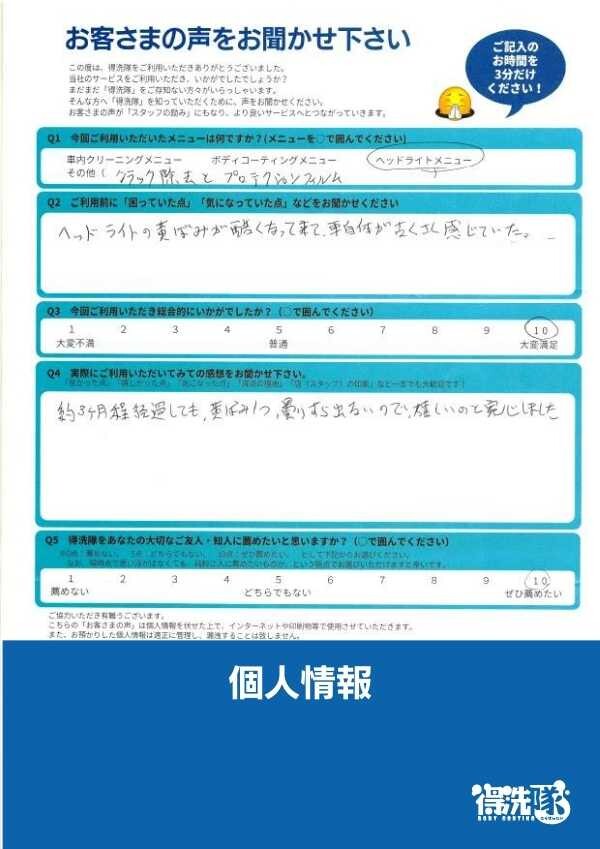 お客さまの声をお聞かせ下さい
ご記入の
お時間を
3分だけ
ください!
この度は、得洗隊をご利用いただきありがとうございました。
当社のサービスをご利用いただき、いかがでしたでしょうか?
まだまだ「得洗隊」をご存知ない方々がいらっしゃいます。
そんな方へ「得洗隊」を知っていただくために、声をお聞かせください。
お客さまの声が「スタッフの励み」にもなり、より良いサービスへとつながっていきます。
Q1 今回ご利用いただいたメニューは何ですか?(メニューを○で囲んでください)
車内クリーニングメニュー ボディコーティングメニュー ヘッドライトメニュー
その他( クラック除去と プロテクションフィルム
Q2 ご利用前に「困っていた点」「気になっていた点」などをお聞かせください
ヘッドライトの黄ばみが酷くなって来て、車自体が古くさく感じていた。
Q3 今回ご利用いただき総合的にいかがでしたか?(○で囲んでください)
1 2 3 4 5 6 7 8 9 10
大変不満 普通 大変満足
Q4 実際にご利用いただいてみての感想をお聞かせ下さい。
約3ヶ月程経過しても、黄ばみ1つ、曇りすら出ないので、嬉しいのと安心しました
Q5 得洗隊をあなたの大切なご友人・知人に薦めたいと思いますか?(○で囲んでください)
1 2 3 4 5 6 7 8 9 10
薦めない どちらでもない ぜひ薦めたい
ご協力いただき有難うございます。
こちらの「お客さまの声」は個人情報を伏せた上で、インターネットや印刷物等で使用させていただきます。
また、お預かりした個人情報は適正に管理し、漏洩することは致しません。
個人情報
得洗隊
BODY COATING